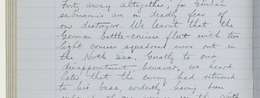 Forty away altogether, for German
seamanis are in deadly fear of
our destroyer. We heard that the
German battle-cruiser fleet with two
light cruiser squadrons were out in
the North Sea. Greatly to our
disappointment however, we heard
later that the enemy had returned
to his base, evidently having been